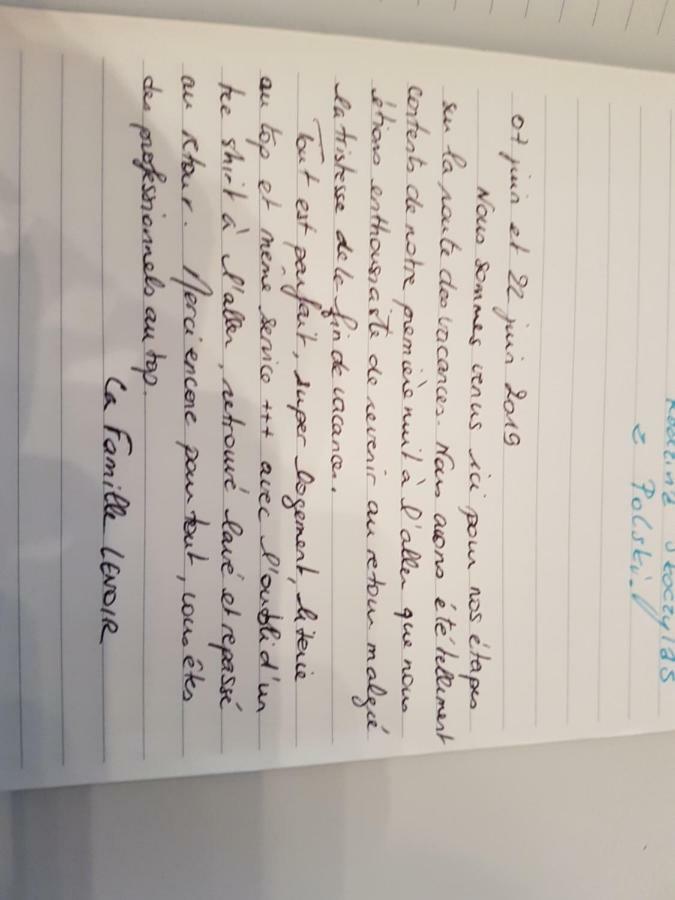 z Polski
07 juin et 22 juin 2019
Nous sommes venus ici pour nos étapes
sur la route des vacances. Nous avons été tellement
contents de notre première nuit à l'aller que nous
étions enthousiaste de revenir au retour malgré
la tristesse de la fin de vacances.
Tout est parfait, super logement, literie
au top et même service +++ avec l'oubli d'un
tee shirt à l'aller, retrouvé lavé et repassé
au retour. Merci encore pour tout, vous êtes
des professionnels au top.
La Famille LENOIR